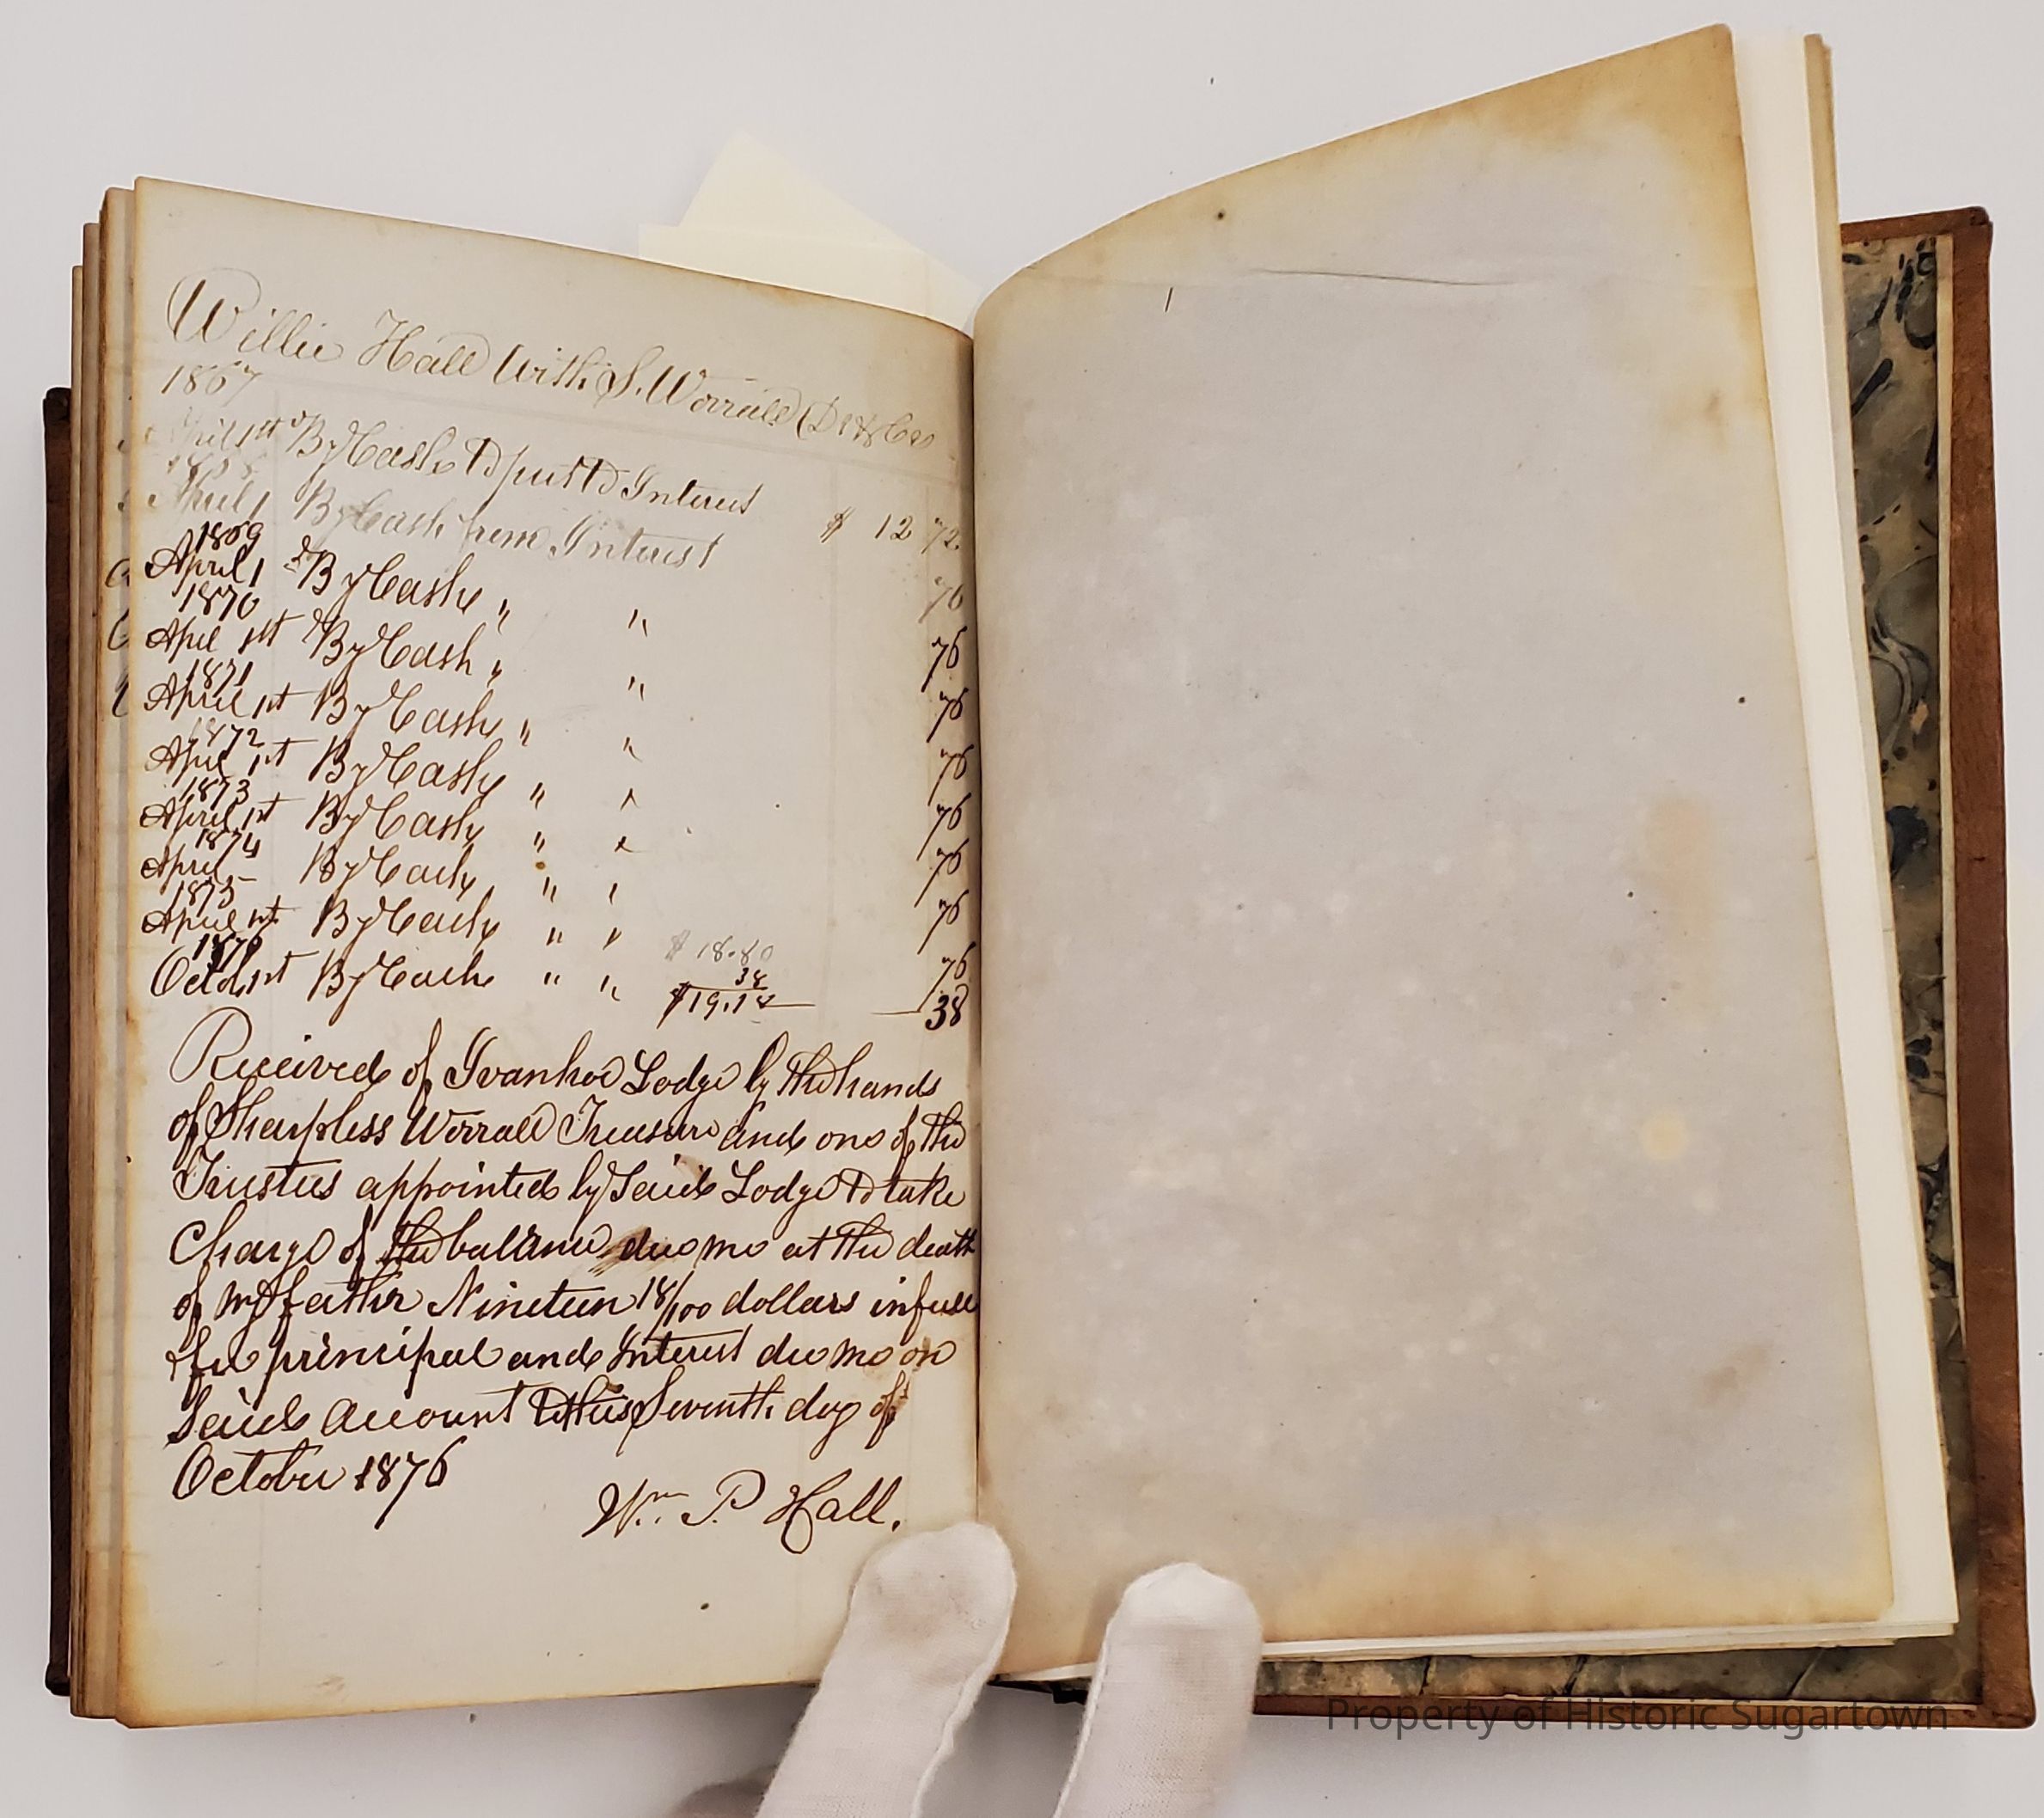 Willie Hall With S. Worrall Dr & Cr
1867
April 1st By Cash to put to Interest $ 12 72
1868
April 1 By Cash from Interest 76
1869
April 1 By Cash " " 76
1870
April 1st By Cash " " 76
1871
April 1st By Cash " " 76
1872
April 1st By Cash " " 76
1873
April 1st By Cash " " 76
1874
April By Cash " " 76
1875
April 1st By Cash " " 76
1876 $18.80
Octob 1st By Cash " " 38 38
$19.18
Received of Ivanhoe Lodge by the hands
of Sharpless Worrall Treasure and one of the
Trustees appointed by Said Lodge to take
Charge of the balance due me at the death
of my father Nineteen 18/100 dollars in full
for principal and Interest due me on
Said account this Seventh day of
October 1876
Wm P Hall.
Property of Historic Sugartown